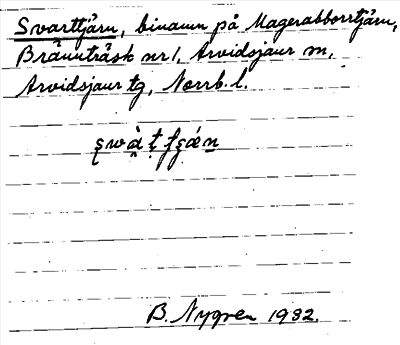 Svarttjärn, binamn på Magerabborrtjärn,
Brännträsk nr 1, Arvidsjaur sn,
Arvidsjaur tg, Norrb. l.
B. Nygren 1932.